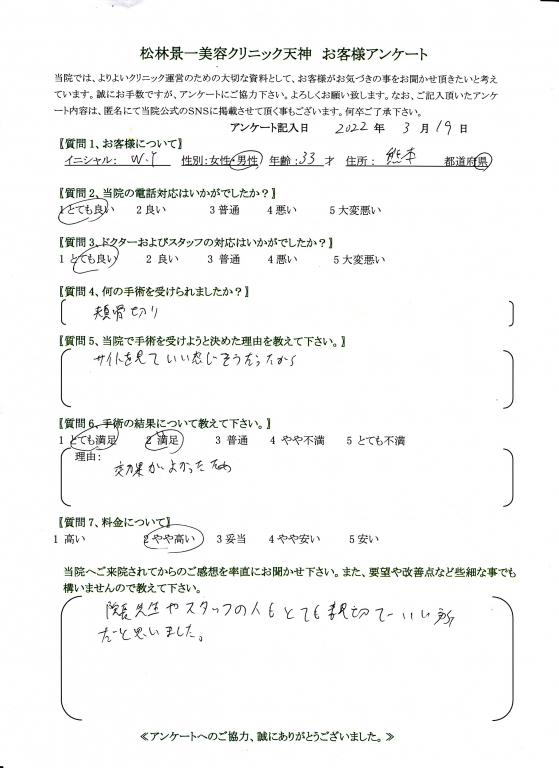 松林景一美容クリニック天神 お客様アンケート
当院では、よりよいクリニック運営のための大切な資料として、お客様がお気づきの事をお聞かせ頂きたいと考え
ています。誠にお手数ですが、アンケートにご協力下さい。よろしくお願い致します。なお、ご記入頂いたアンケ
ート内容は、匿名にて当院公式のSNSに掲載させて頂く事もございます。何卒ご了承下さい。
アンケート記入日 2022 年 3 月 19 日
〖質問 1、お客様について〗
イニシャル: W.Y 性別:女性・男性 年齢:33 才 住所: 熊本 都道府県
〖質問 2、当院の電話対応はいかがでしたか?〗
1 とても良い 2 良い 3 普通 4 悪い 5 大変悪い
〖質問 3、ドクターおよびスタッフの対応はいかがでしたか?〗
1 とても良い 2 良い 3 普通 4 悪い 5 大変悪い
〖質問 4、何の手術を受けられましたか?〗
頬骨切り
〖質問 5、当院で手術を受けようと決めた理由を教えて下さい。〗
サイトを見ていい感じそうだったから
〖質問 6、手術の結果について教えて下さい。〗
1 とても満足 2 満足 3 普通 4 やや不満 5 とても不満
理由:
効果がよかったため
〖質問 7、料金について〗
1 高い 2 やや高い 3 妥当 4 やや安い 5 安い
当院へご来院されてからのご感想を率直にお聞かせ下さい。また、要望や改善点など些細な事でも
構いませんので教えて下さい。
院長先生やスタッフの人もとても親切でいい所
だと思いました。
≪アンケートへのご協力、誠にありがとうございました。≫